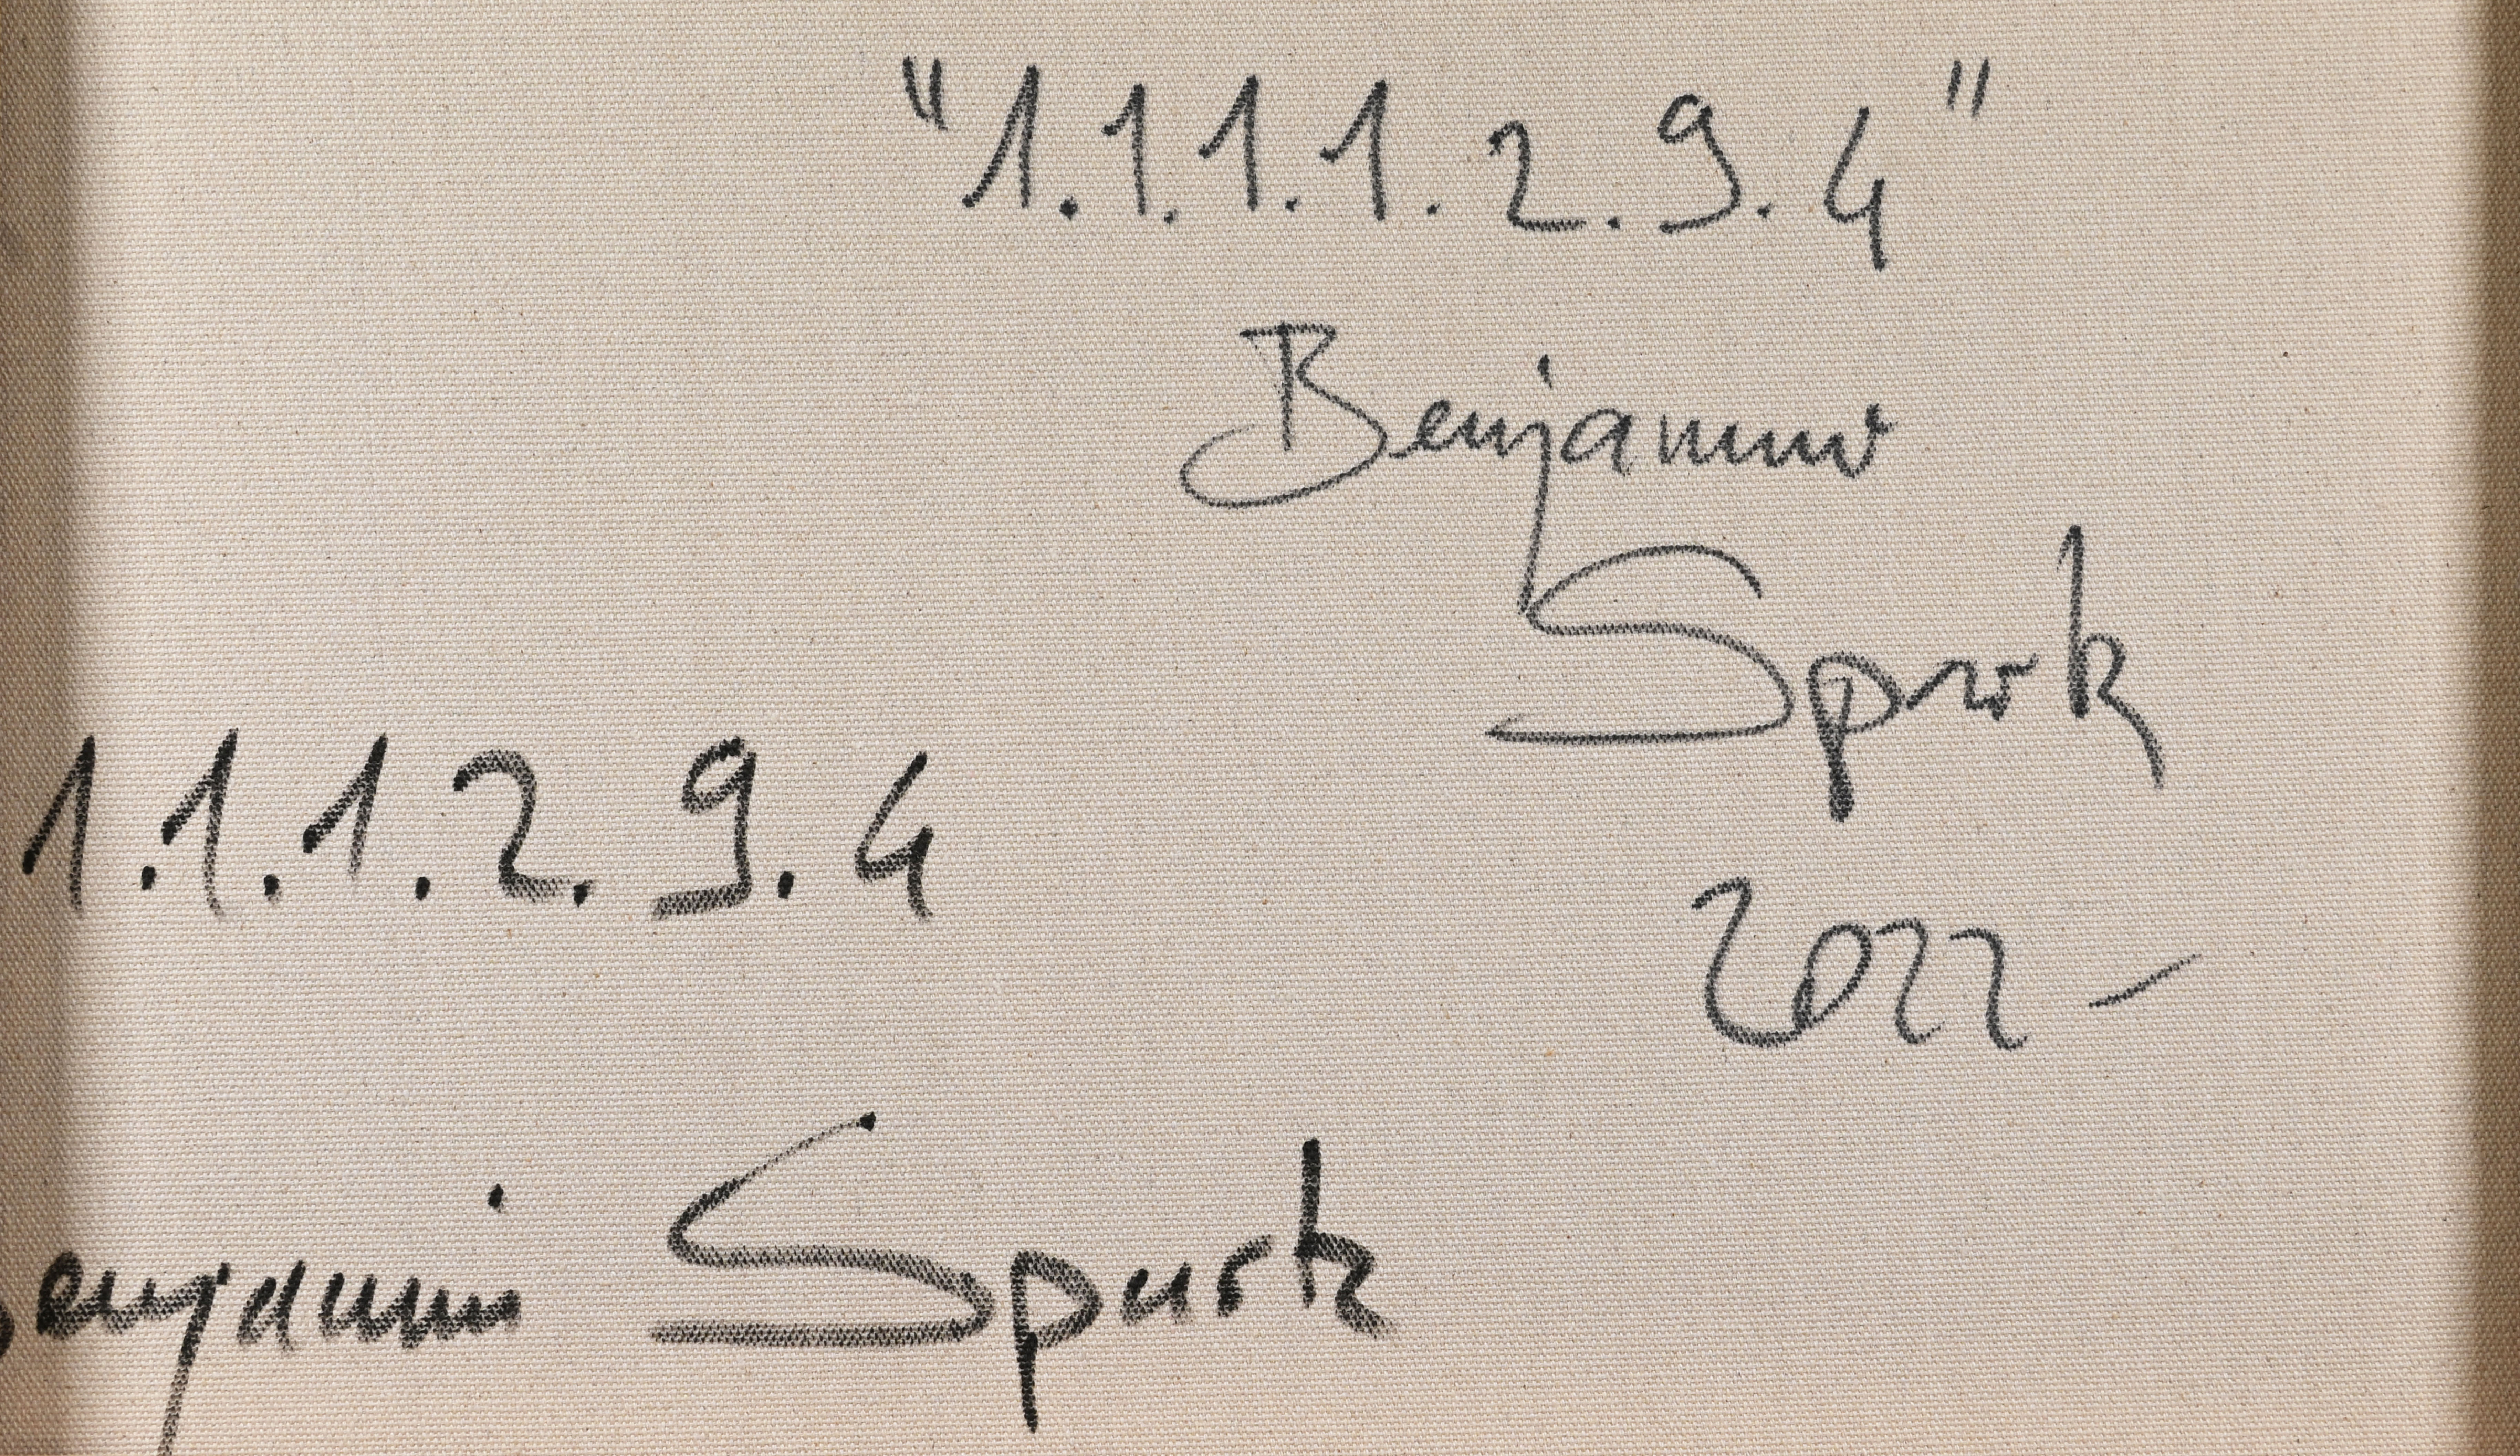 "1.1.1.1.2.9.4"
Benjamin
Spurk
2022-
1.1.1.2.9.4
Benjamin Spurk